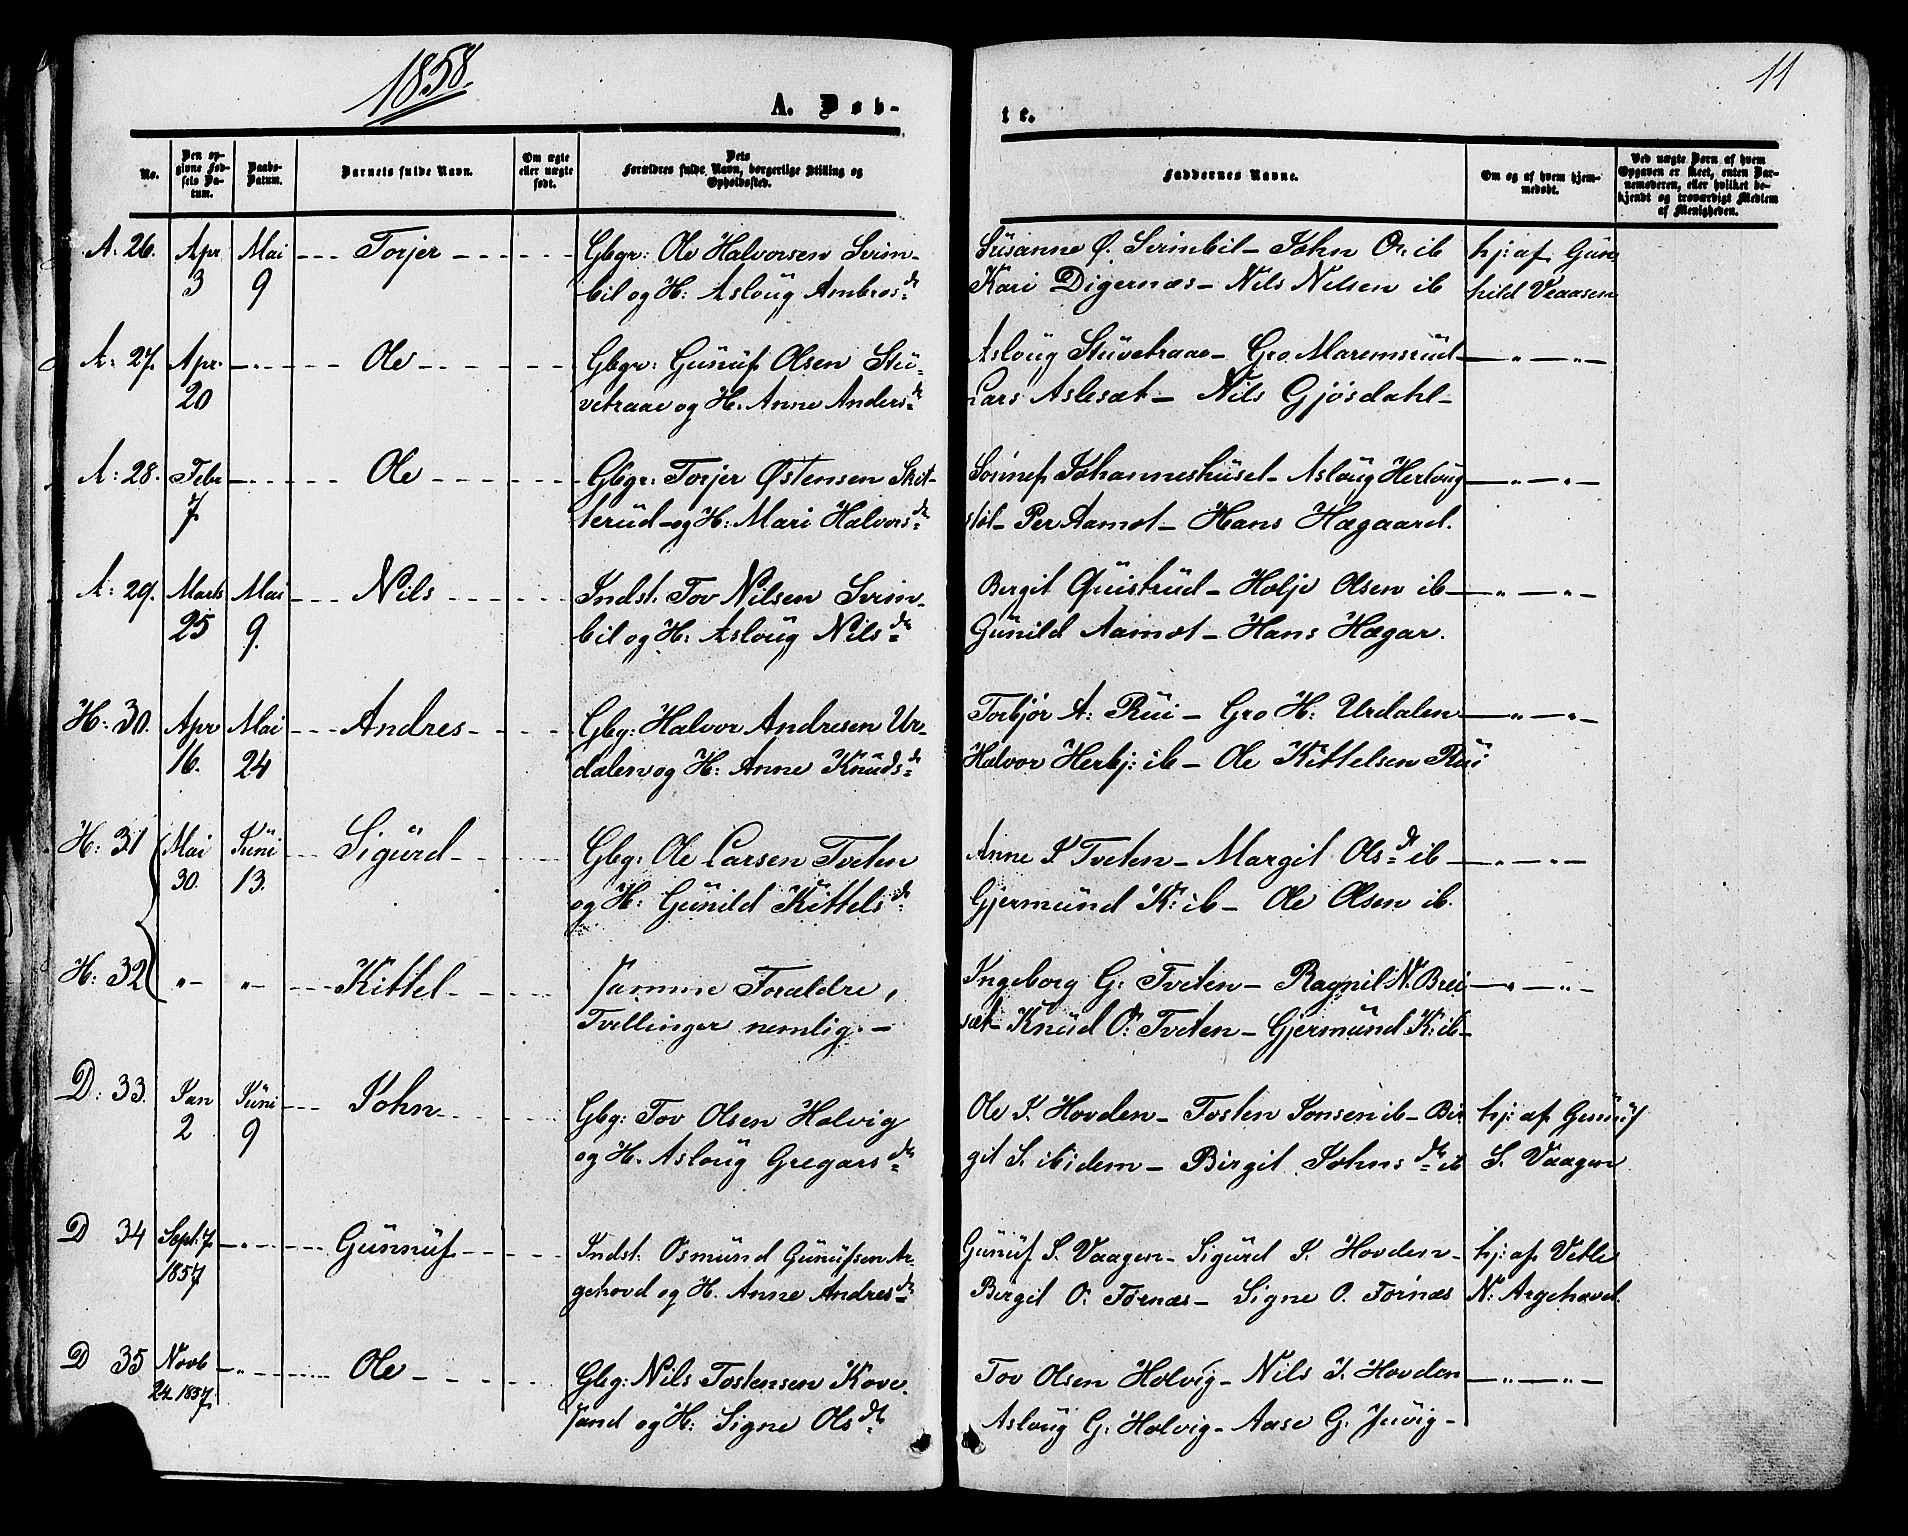 1858.
11
A. Døb-
te.
No.
Den opgivne Fødsels Datum.
Daabs-Datum.
Barnets fulde Navn.
Om ægte eller uægte født.
Dets Forældres fulde Navn, borgerlige Stilling og Opholdssted.
Faddernes Navne.
Om og af hvem hjemmedøbt.
Ved uægte Børn af hvem Opgaven er skeet, enten Barnemoderen, eller hvilket bekjendt og troværdigt Medlem af Menigheden.
A: 26. Apr 3 Mai 9 Torjer Gbgr: Ole Halvorsen Svim- Susanne Ø. Svimbil - John O: ib hj: af Gun-
bil og H: Asloug Ambros dr Kari Digernæs - Nils Nilsen ib hild Vaasen
A: 27. Apr. 20 - " - Ole Gbgr: Gunuf Olsen Stu- Asloug Stuvetraae - Gro Maremsrud - " - " -
vetraae og H. Anne Anders dr Lars Aslesæt - Nils Gjøsdahl -
A: 28. Febr 7 - " - Ole Gbgr: Torjer Østensen Skot- Sønnef Johanneshuset - Asloug Hertoug - " - " -
terud - og H: Mari Halvors dr støl - Per Aamot - Hans Hægaard.
A: 29. Marts 25 Mai 9. Nils Indst. Tov Nilsen Svim- Birgit Quistrud - Holje Olsen ib - " - " -
bil og H: Asloug Nils dr Gunild Aamot - Hans Hægar.
H: 30. Apr 16. Mai 24 Andres Gbg: Halvor Andresen Ur- Torbjør A: Rui - Gro H: Urdalen - " - " -
dalen og H: Anne Knuds dr Halvor Herbj: ib - Ole Kittelsen Rui
H: 31 Mai 30. Juni 13. Sigurd Gbg: Ole Larsen Tveten Anne K Tveten - Margit Ols dr ib - " - " -
og H: Gunild Kittels dr Gjermund K: ib - Ole Olsen ib.
H: 32 " - " - Kittel Samme Forældre, Ingeborg G: Tveten - Ragnil N. Brei - " - " -
Tvillinger nemlig. - sæt - Knud O: Tveten - Gjermund K: ib -
D: 33. Jan 2 Juni 9 John Gbg: Tov Olsen Holvig Ole K. Hovden - Tosten Jonsen ib - Bir hj: af Gunuf
og H. Asloug Gregars dr git S. ibidem - Birgit Johns dr ib S. Vaagen
D 34 Sept. 7 1857 - " - Gunnuf Indst: Osmund Gunufsen Ar- Gunuf S. Vaagen - Sigurd K. Hovden - hj: af Vetle
gehovd og H. Anne Andres dr Birgit O: Førnæs - Signe O. Førnæs N: Argehavd.
D 35 Novb 24 1857. - " - Ole Gbg: Nils Tostensen Kove- Tov Olsen Holvig - Nils K. Hovden - " - " -
sand og H: Signe Ols dr Asloug G: Holvig - Aase G. Juvig -